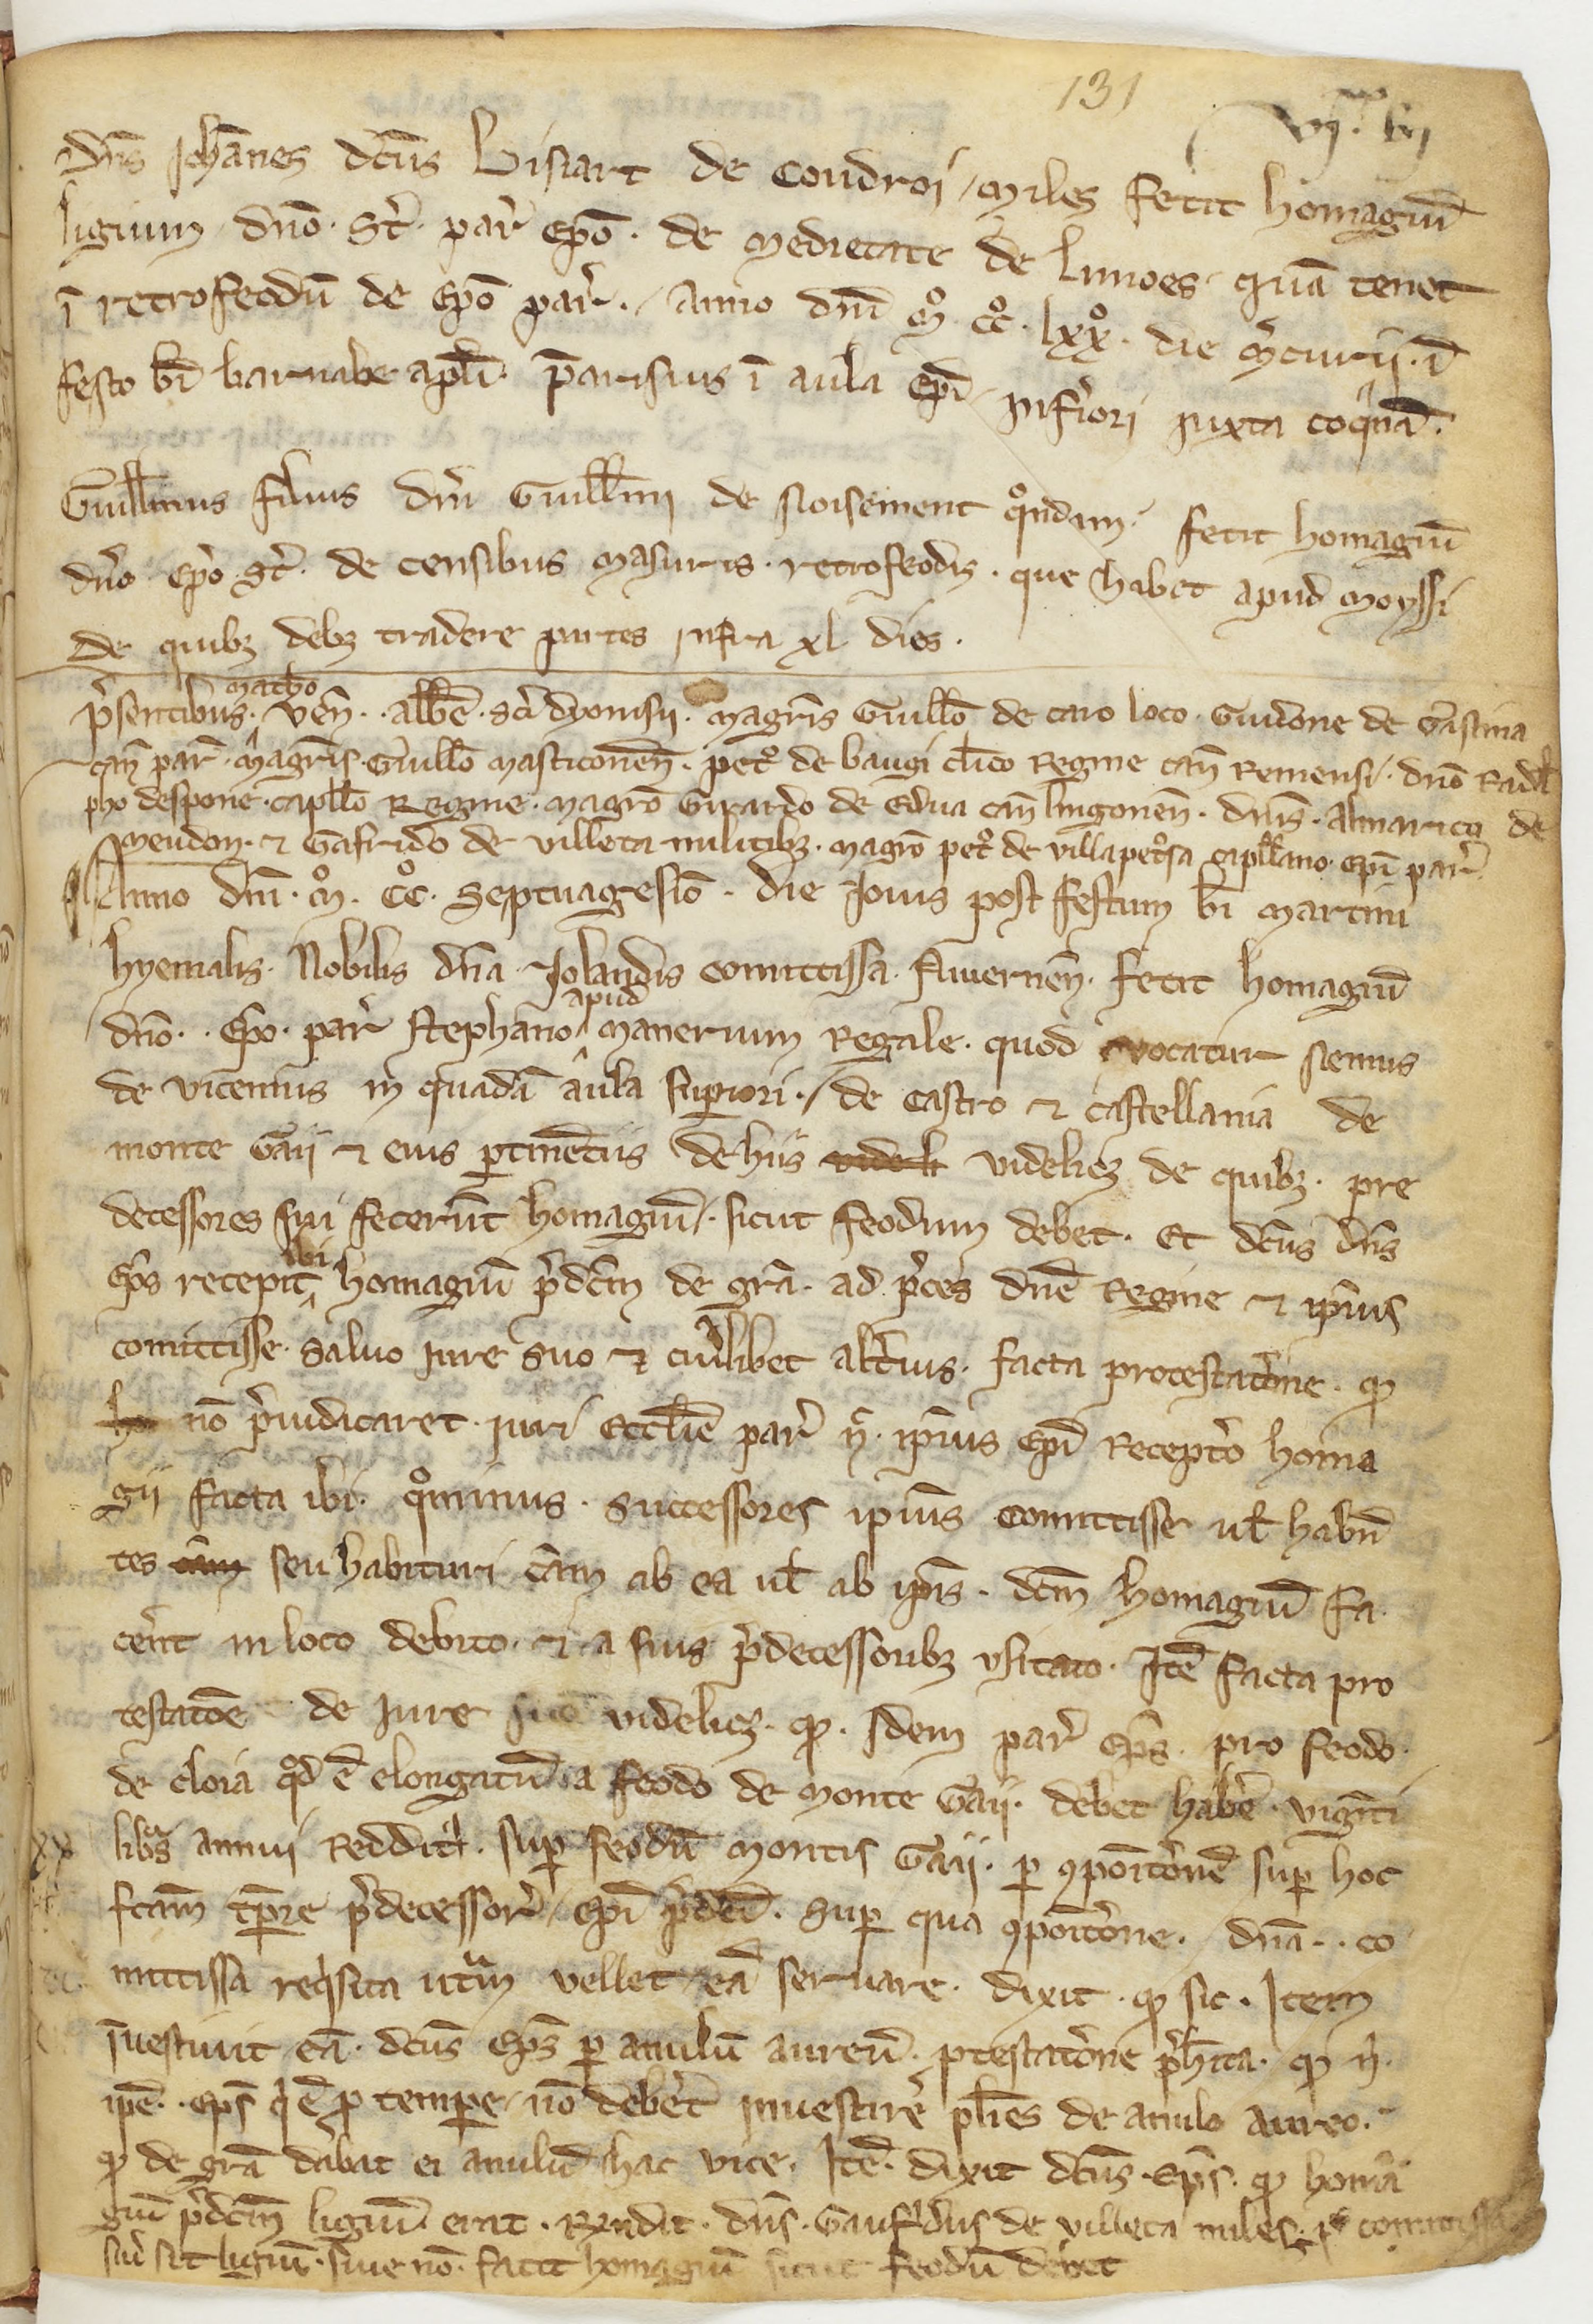 131
Dn̄s Joh̄anes dc̄us Lisiart de Coudroi miles fecit homagiū
ligium dn̄o St̄. par̄ ep̄o. de medietate de Limoes quā tenet
ī retrofeodū de ep̄o par̄. Anno dn̄i m̊ cc̊ lxx̊. die m̄curii. ī
festo bī barnabe apl̄i. parisius ī aula ep̄i inferiori iuxta coq̄nā.
Guill̄mus filius dn̄i Guill̄mi de Noisement q̊ndam. fecit homagiū
dn̄o ep̄o St̄. de censibus masuris. retrofeodis. que habet apud moyssi
de quibȝ debȝ tradere partes infra xl dies.
matho
p̄sentibus. ven̄. abb̄e. sc̄i dyonisii. magr̄is Guill̄o de caro loco. Guidone de Gastina
can̄ par̄. magr̄is. Guill̄o masticonen̄. pet̊ de baugi cl̄ico Regine can̄ Remensi. dn̄o Radul
pho despone. capll̄o Regine. magr̄o Girardo de Edua can̄ lingonen̄. dn̄is. Almarico de
meudon. ⁊ Gafrido de villeta militibȝ. magr̄o pet̊ de villapet̊sa capll̄ano ep̄i par̄
Anno dn̄i. m̊. cc̊. septuagesīo. die Jovis post festum bī martini
hyemalis. Nobilis dn̄a Jolandis comittissa. Nivernen̄. fecit homagiū
apud
dn̄o. ep̄o. par̄ stephano manerium Regale. quod vocatur nemus
de vicennis in quadā aula superiori. de castro ⁊ castellania de
monte Gaii ⁊ eius ptinētiis de hiis videlicȝ de quibȝ. pre
decessores sui fecerūt homagiū. sicut feodum debet. Et dc̄us dn̄s
ibi
ep̄s recepit homagiū p̄dc̄m de grā. ad p̄ces dn̄e Regine ⁊ ip̄ius
comittisse. salvo iure suo ⁊ cuilibet alt̄ius. facta protestatōne. qȝ
nō p̄iudicaret. iuri eccl̄ie par̄ n̄. ip̄ius ep̄i receptō homa
gii facta ibi. q̊minus. successores ip̄ius comittisse ul̄ habn̄
tes seu habituri cām ab ea ul̄ ab ip̄is. dc̄m homagiū fa
cerēt in loco debito. ⁊ a suis p̄decessoribȝ usitato. Itē facta pro
testatōe de iure suo videlicȝ. qȝ. idem par̄ ep̄s. pro feodo.
de cloia qd̊ ē elongatū a feodo de monte Gaii. debet habē. vigīti
xx
libas annui reddit̄. sup feodū montis Gaii. p ꝯpoīcōnē sup hoc
fcām tp̄re p̄decessor̄ ep̄i p̄dc̄i. sup qua ꝯpoīcōne. dn̄a. co
mittissa req̄sita utrm̄ vellet eā servare. dixit. qȝ sic. Item
īvestivit eā. dc̄us ep̄s p anulū aureū. ptestatōne p̄hīta. qȝ n̄.
ip̄e. ep̄s q̄ ē p tempe nō debet investire pl̄ies de anulo aureo.
qȝ de grā dabat ei anulū hac vice. Itē. dixit dc̄us. ep̄s. qȝ homa
giū p̄dc̄m ligiū erat. Rn̄dit. dn̄s. Gaufr̄dus de villeta miles. p comittissa
siū sit ligiū. sive nō. facit homagiū sicut feodū debet